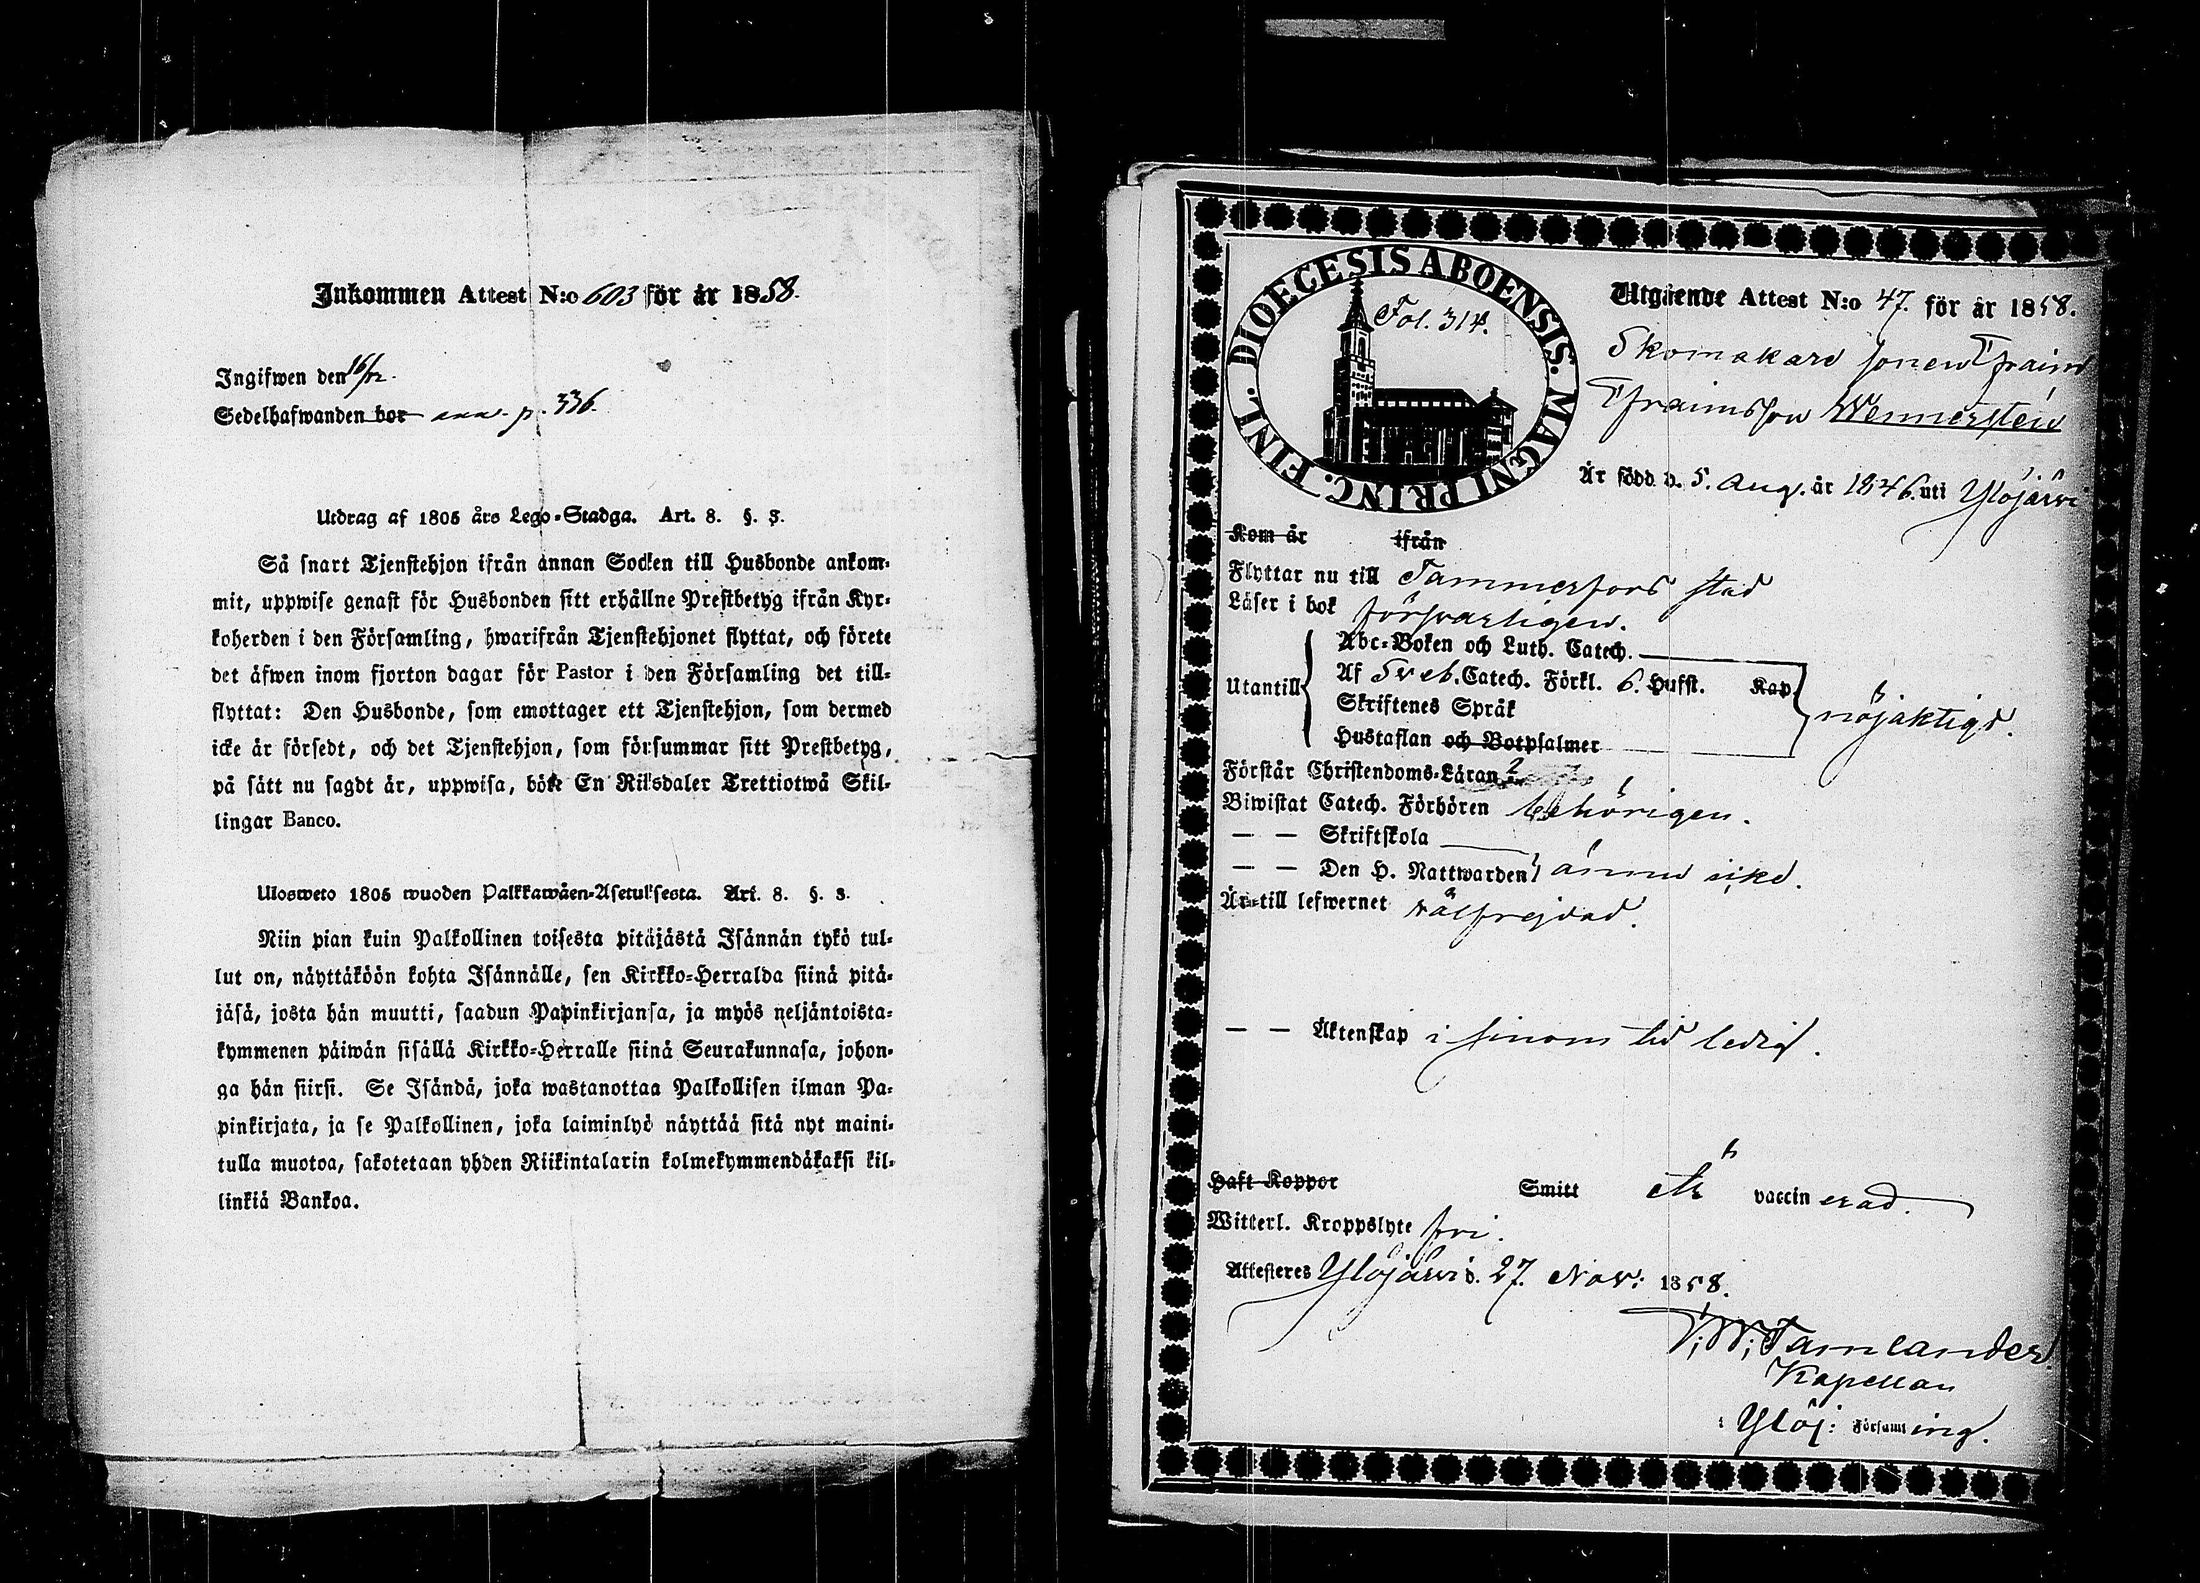 Inkommen Attest N:o 603 för år 1858.
Ingifwen den 16/12.
Sedelhafwanden bor p. 336.
Utdrag af 1805 års Lego-Stadga. Art. 8. §. 3.
Så snart Tjenstehjon ifrån annan Socken till Husbonde ankom-
mit, uppwise genast för Husbonden sitt erhållne Prestbetyg ifrån Kyr-
koherden i den Församling, hwarifrån Tjenstehjonet flyttat, och förete
det äfwen inom fjorton dagar för Pastor i den Församling det till-
flyttat: Den Husbonde, som emottager ett Tjenstehjon, som dermed
icke är försedt, och det Tjenstehjon, som försummar sitt Prestbetyg,
på sätt nu sagdt är, uppwisa, böte En Riksdaler Trettiotwå Skil-
lingar Banco.
Ulosweto 1805 wuoden Palkkawäen-Asetuksesta. Art. 8. §. 3.
Niin pian kuin Palkollinen toisesta pitäjästä Isännän tykö tul-
lut on, näyttäköön kohta Isännälle, sen Kirkko-Herralda siinä pitä-
jäsä, josta hän muutti, saadun Papinkirjansa, ja myös neljäntoista-
kymmenen päiwän sisällä Kirkko-Herralle siinä Seurakunnasa, johon-
ga hän siirsi. Se Isändä, joka wastanottaa Palkollisen ilman Pa-
pinkirjata, ja se Palkollinen, joka laiminlyö näyttää sitä nyt maini-
tulla muotoa, sakotetaan yhden Riikintalarin kolmekymmendäkaksi kil-
linkiä Bankoa.
DIOECESIS ABOENSIS. MAGNI PRINC. FINL.
Fol. 314.
Utgående Attest N:o 47. för år 1858.
Skomakare sonen Efraim
Efraimsson Wennersten
Är född d. 5. Aug. år 1846. uti Ylöjärvi
Kom år ifrån
Flyttar nu till Tammerfors stad
Läser i bok försvarligen.
Utantill
Abc-Boken och Luth. Catech.
Af Sveb. Catech. Förkl. 6. Hufst. Kap.
Skriftenes Språk
Hustaflan och Botpsalmer
nöjaktigt.
Förstår Christendoms-Läran
Biwistat Catech. Förhören behörigen.
— — Skriftskola
— — Den H. Nattwarden } ännu icke.
Är till lefwernet välfrejdad.
— — Äktenskap i sinom tid ledig.
Haft Koppor Smitt Är vaccinerad.
Witterl. Kroppslyte fri.
Attesteres Ylöjärvi d. 27. Nov: 1858.
Tamlander
Kapellan
i Ylöj: Församling.